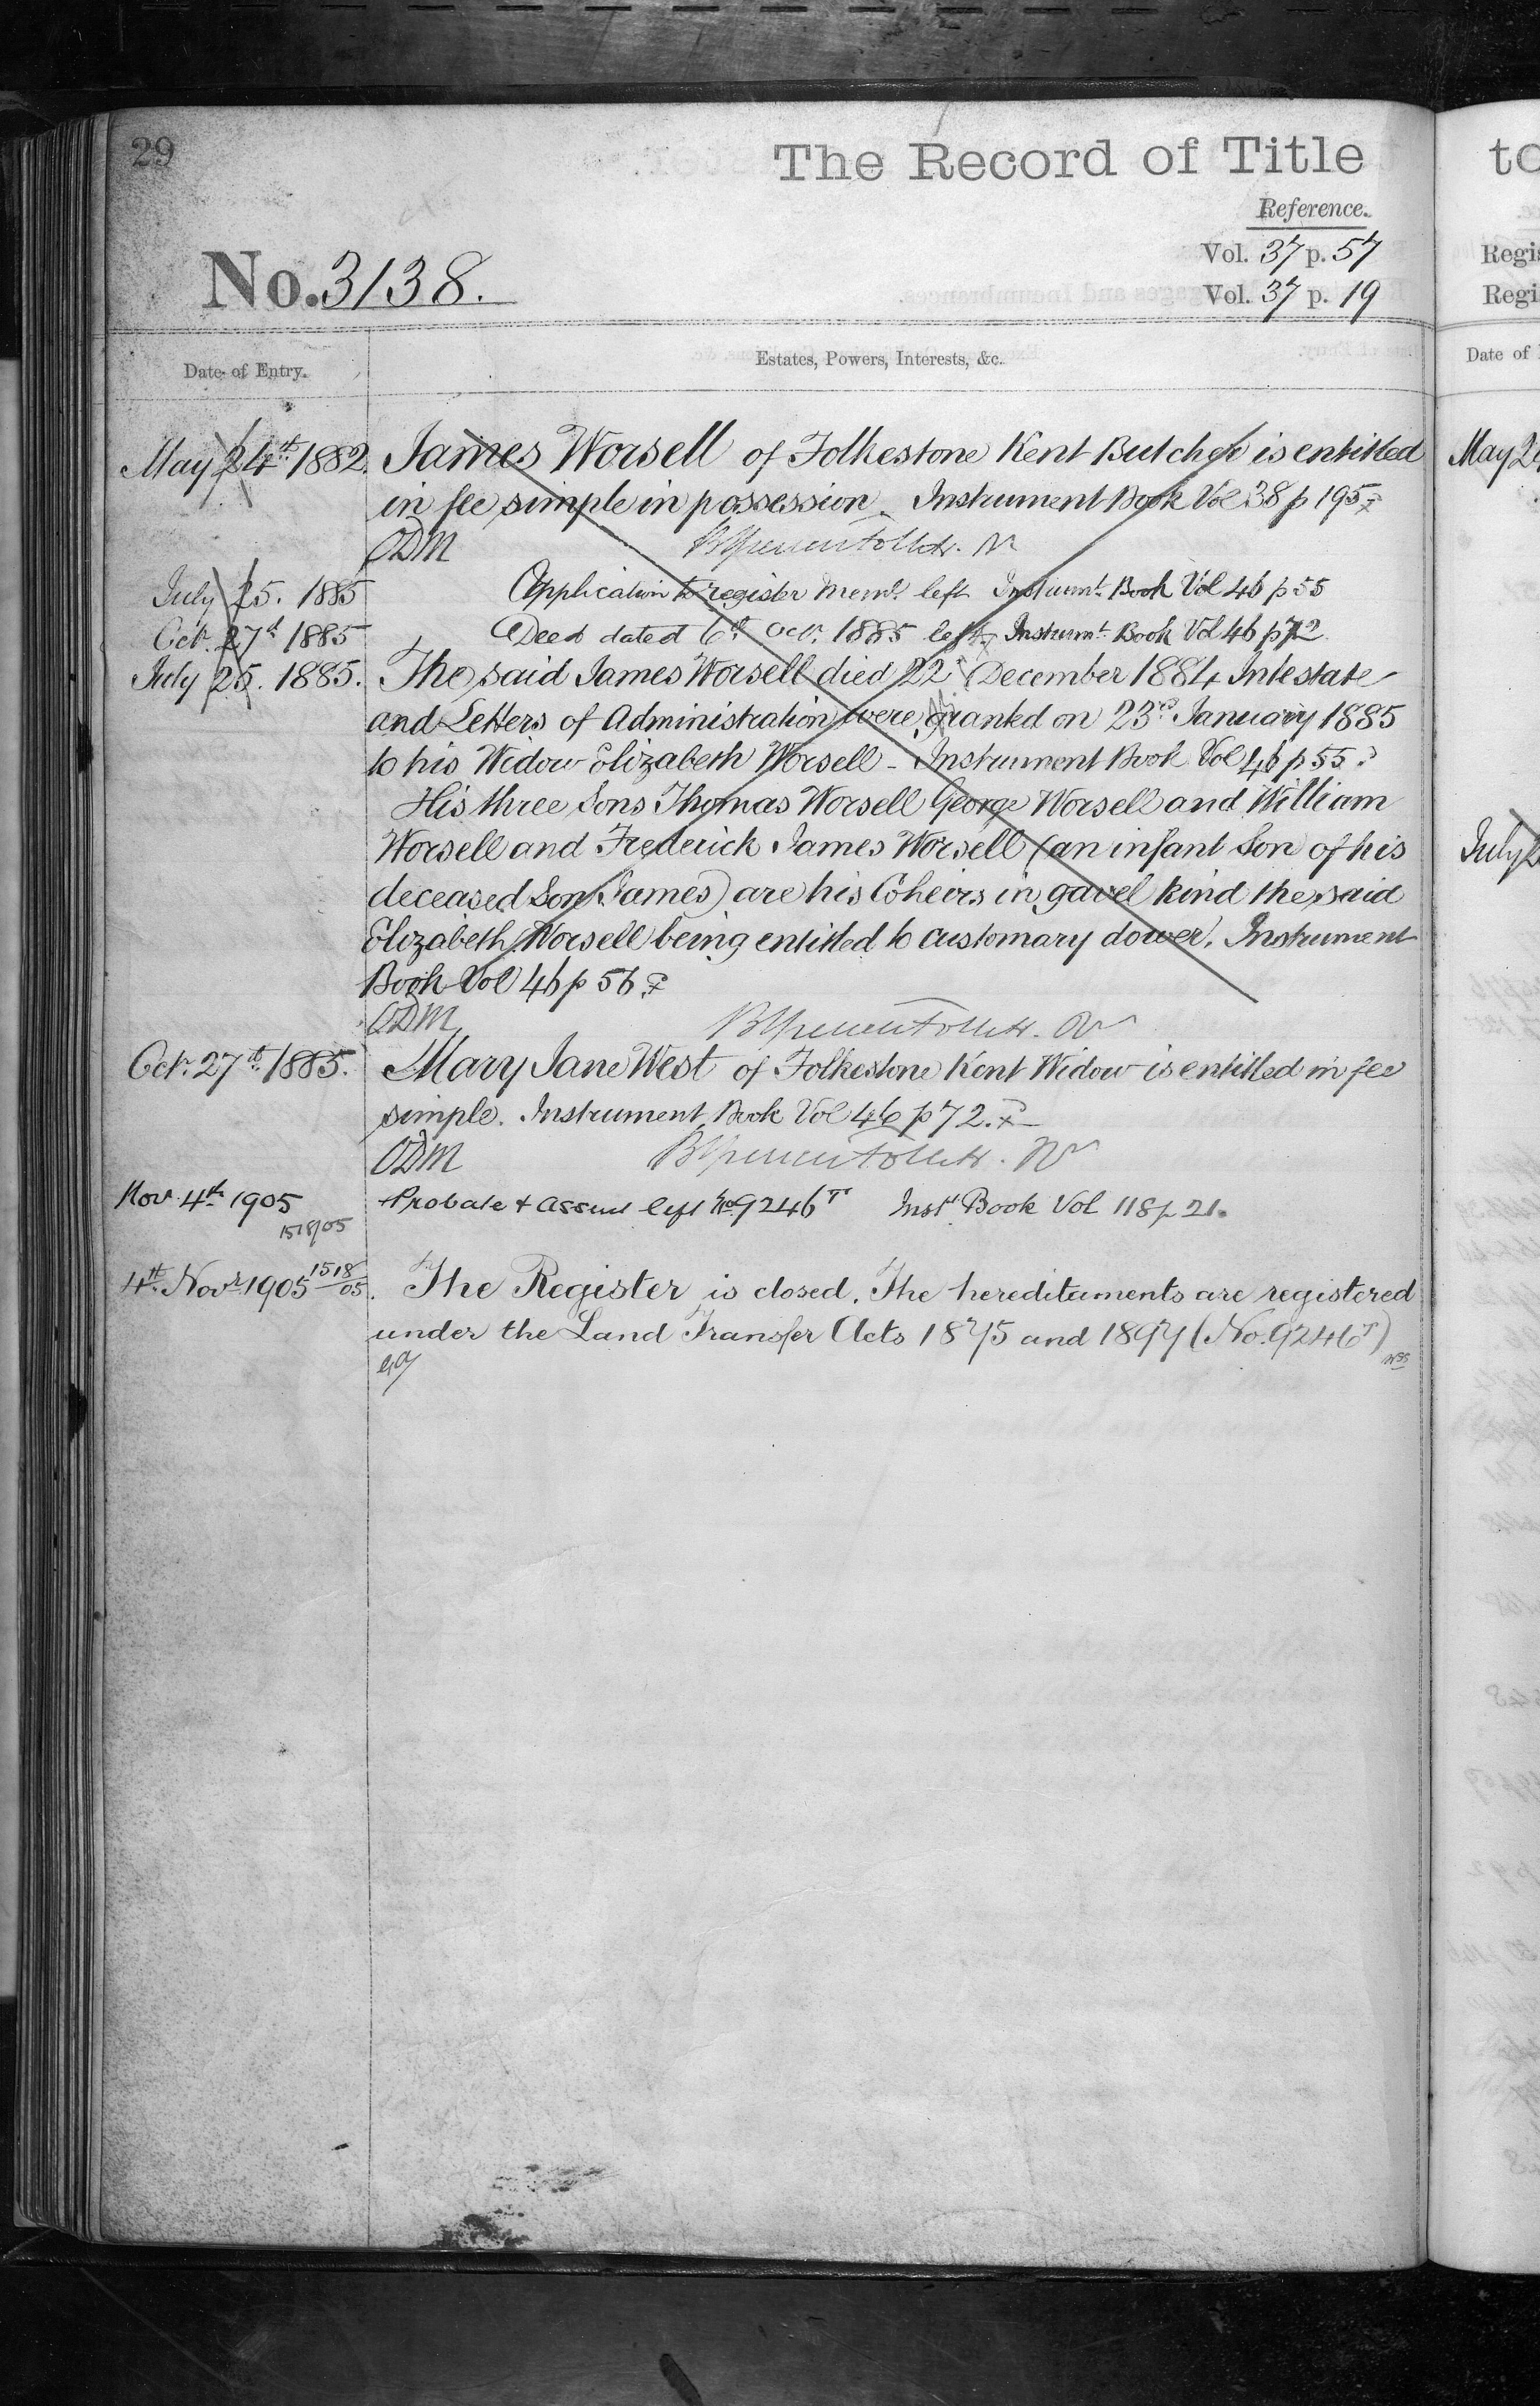 29
The Record of Title
Reference.
Vol. 37 p. 57
No. 3138.
Vol. 37 p. 19
Date of Entry.
Estates, Powers, Interests, &c.
May 24th 1882. James Worsell of Folkestone Kent Butcher is entitled
in fee simple in possession. Instrument Book Vol 38 p 195
ODM
July 25. 1885 Application to register Meml. left Instrumt. Book Vol 46 p 55
Octr. 27th 1885 Deed dated 6th Octr. 1885 left Instrumt. Book Vol 46 p 72
July 25. 1885. The said James Worsell died 22 December 1884 Intestate
and Letters of Administration were granted on 23rd January 1885
to his Widow Elizabeth Worsell - Instrument Book Vol 46 p 55.
His three Sons Thomas Worsell George Worsell and William
Worsell and Frederick James Worsell (an infant Son of his
deceased Son James) are his Coheirs in gavel kind the said
Elizabeth Worsell being entitled to customary dower. Instrument
Book Vol 46 p 56
ODM
Octr. 27th 1885. Mary Jane West of Folkestone Kent Widow is entitled in fee
simple. Instrument Book Vol 46 p 72.
ODM
Nov 4th 1905 Probate & assent left No 9246T Inst Book Vol 118 p 21.
1518/05
4th Novr. 1905 1518/05. The Register is closed. The hereditaments are registered
under the Land Transfer Acts 1875 and 1897 (No. 9246T)
to
Regi
Regi
Date of
May 2
July 2